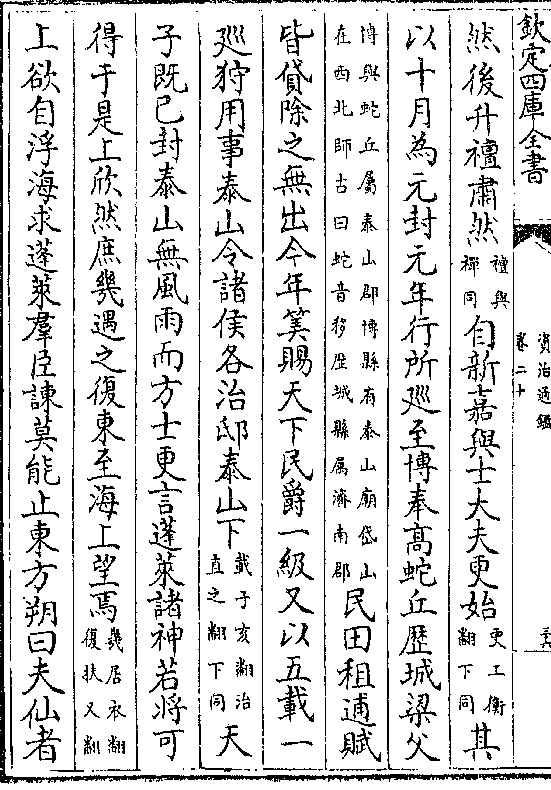 欽定四庫全書
資治通鑑
卷二十
然後升禮肅然禮與禪同自新嘉與士大夫更始更工衡翻下同其
以十月為元封元年行所巡至博奉髙蛇丘歴城梁父
博與蛇丘屬泰山郡博縣有泰山廟岱山在西北師古曰蛇音移歴城縣属濟南郡民田租逋賦
皆貸除之無出今年筭賜天下民爵一級又以五載一
廵狩用事泰山令諸侯各治邸泰山下載子亥翻治直之翻下同天
子既已封泰山無風雨而方士更言蓬萊諸神若將可
得于是上欣然庶幾遇之復東至海上望焉幾居衣翻復扶又翻
上欲自浮海求蓬萊羣臣諫莫能止東方朔曰夫仙者